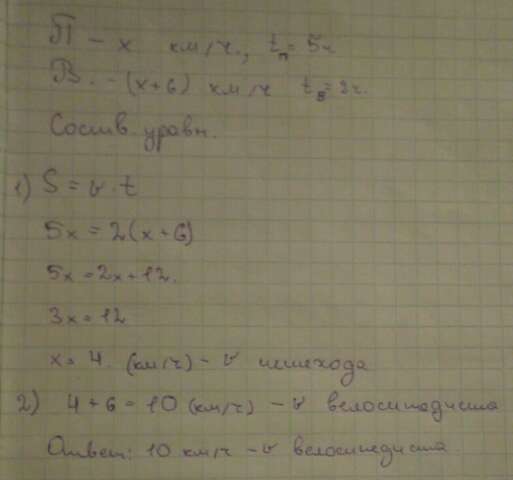 П – x км/ч., tп = 5ч
В. – (x+6) км/ч tв = 2ч.
Состав. уравн.
1) S = v · t
5x = 2(x+6)
5x = 2x+12.
3x = 12
x = 4. (км/ч) – v пешехода
2) 4+6 = 10 (км/ч) – v велосипедиста
Ответ: 10 км/ч – v велосипедиста.